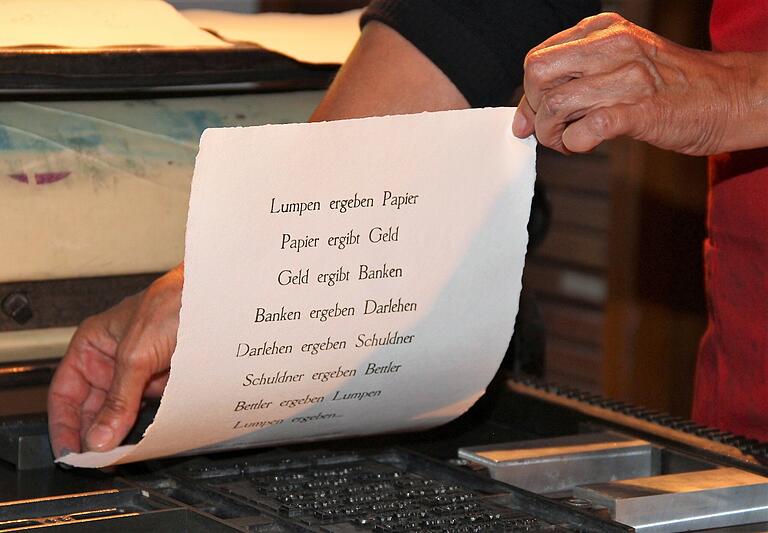 Lumpen ergeben Papier
Papier ergibt Geld
Geld ergibt Banken
Banken ergeben Darlehen
Darlehen ergeben Schuldner
Schuldner ergeben Bettler
Bettler ergeben Lumpen
Lumpen ergeben...